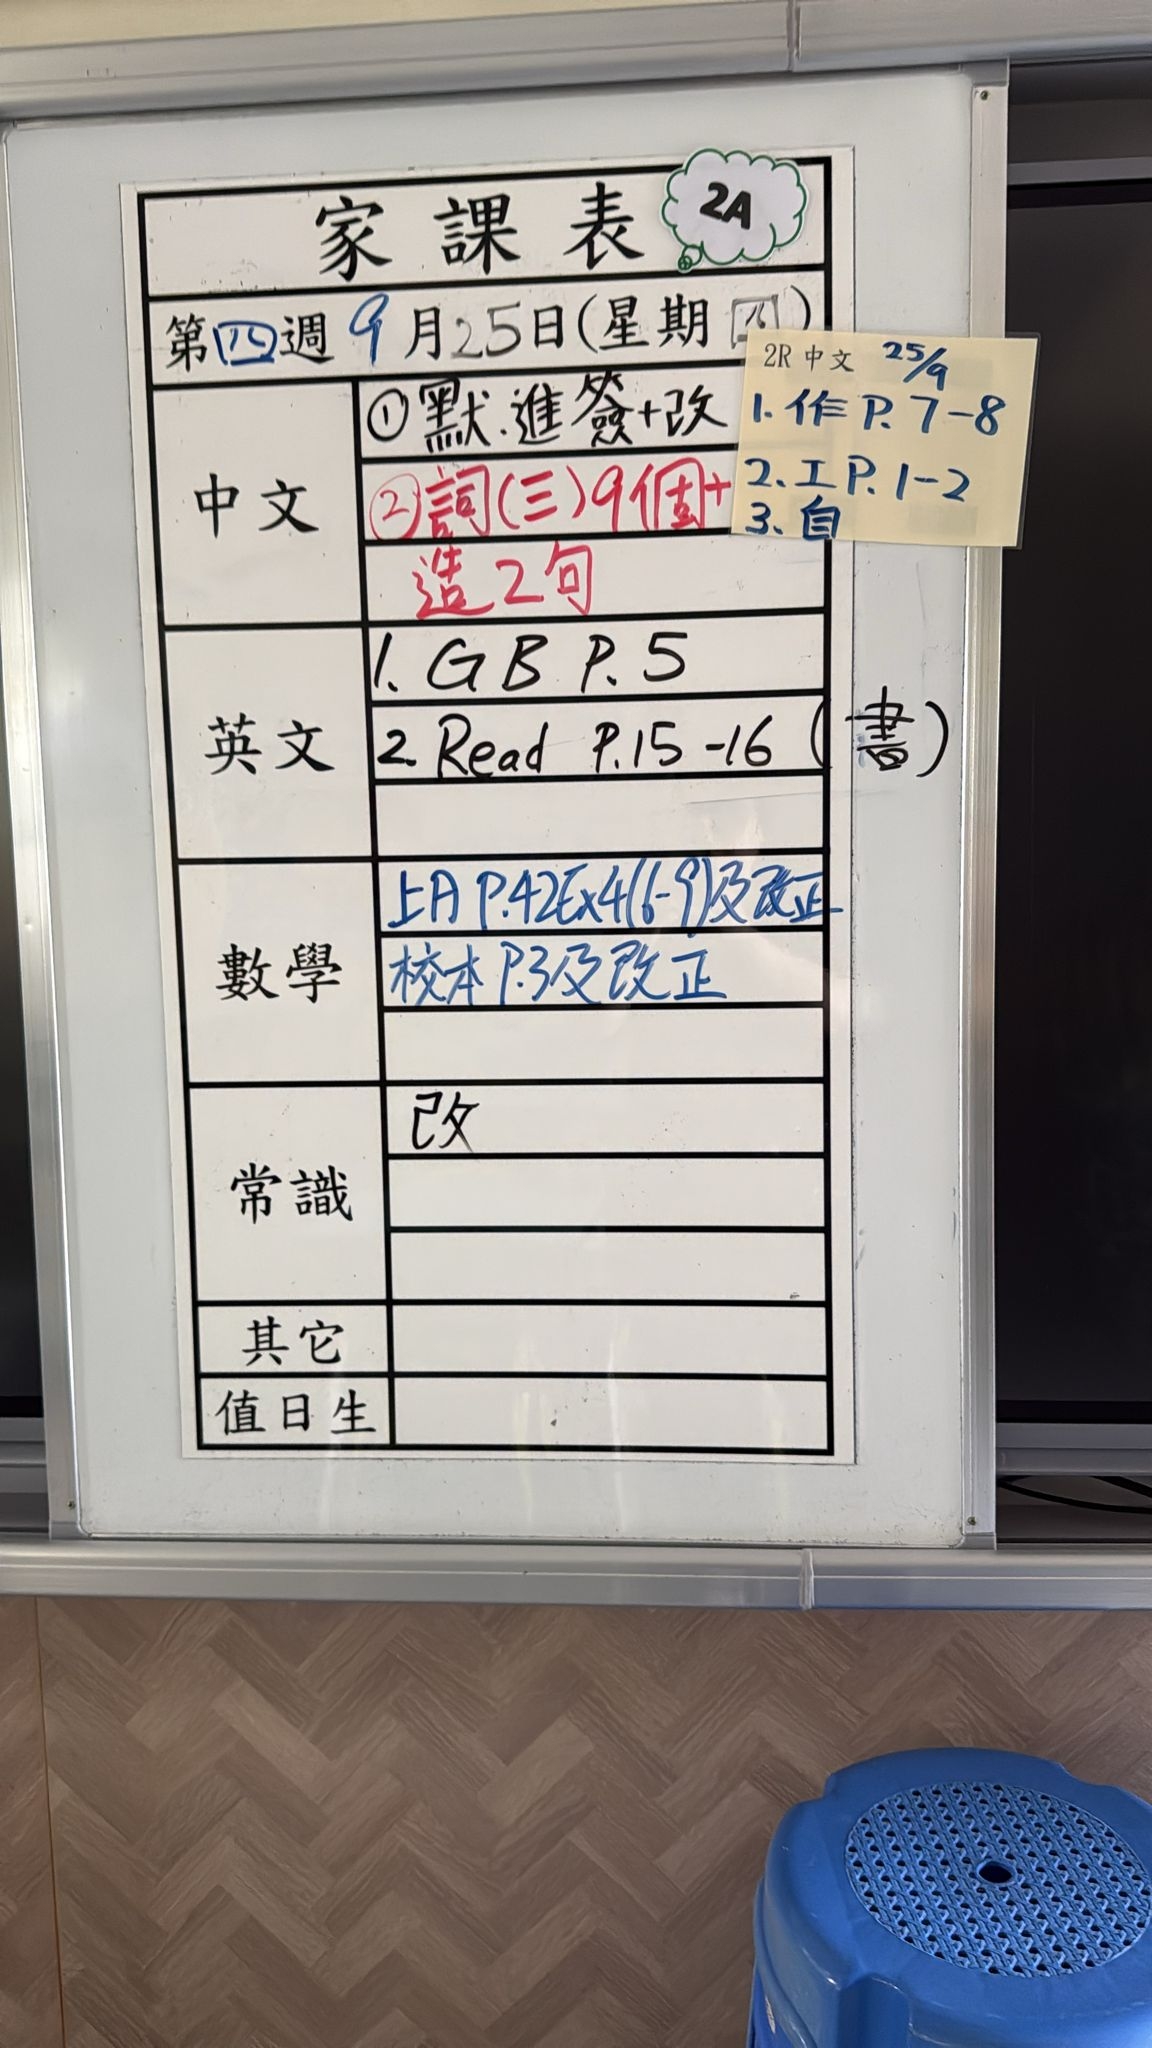 家課表
2A
第四週 9月25日(星期四)
中文
①默.進簽+改
②詞(三)9個+
造2句
2R 中文 25/9
1. 作 P. 7-8
2. 工 P. 1-2
3. 自
英文
1. GB P. 5
2. Read P.15-16 (書)
數學
上A P.42Ex4(6-9)及改正
校本 P.3及改正
常識
改
其它
值日生